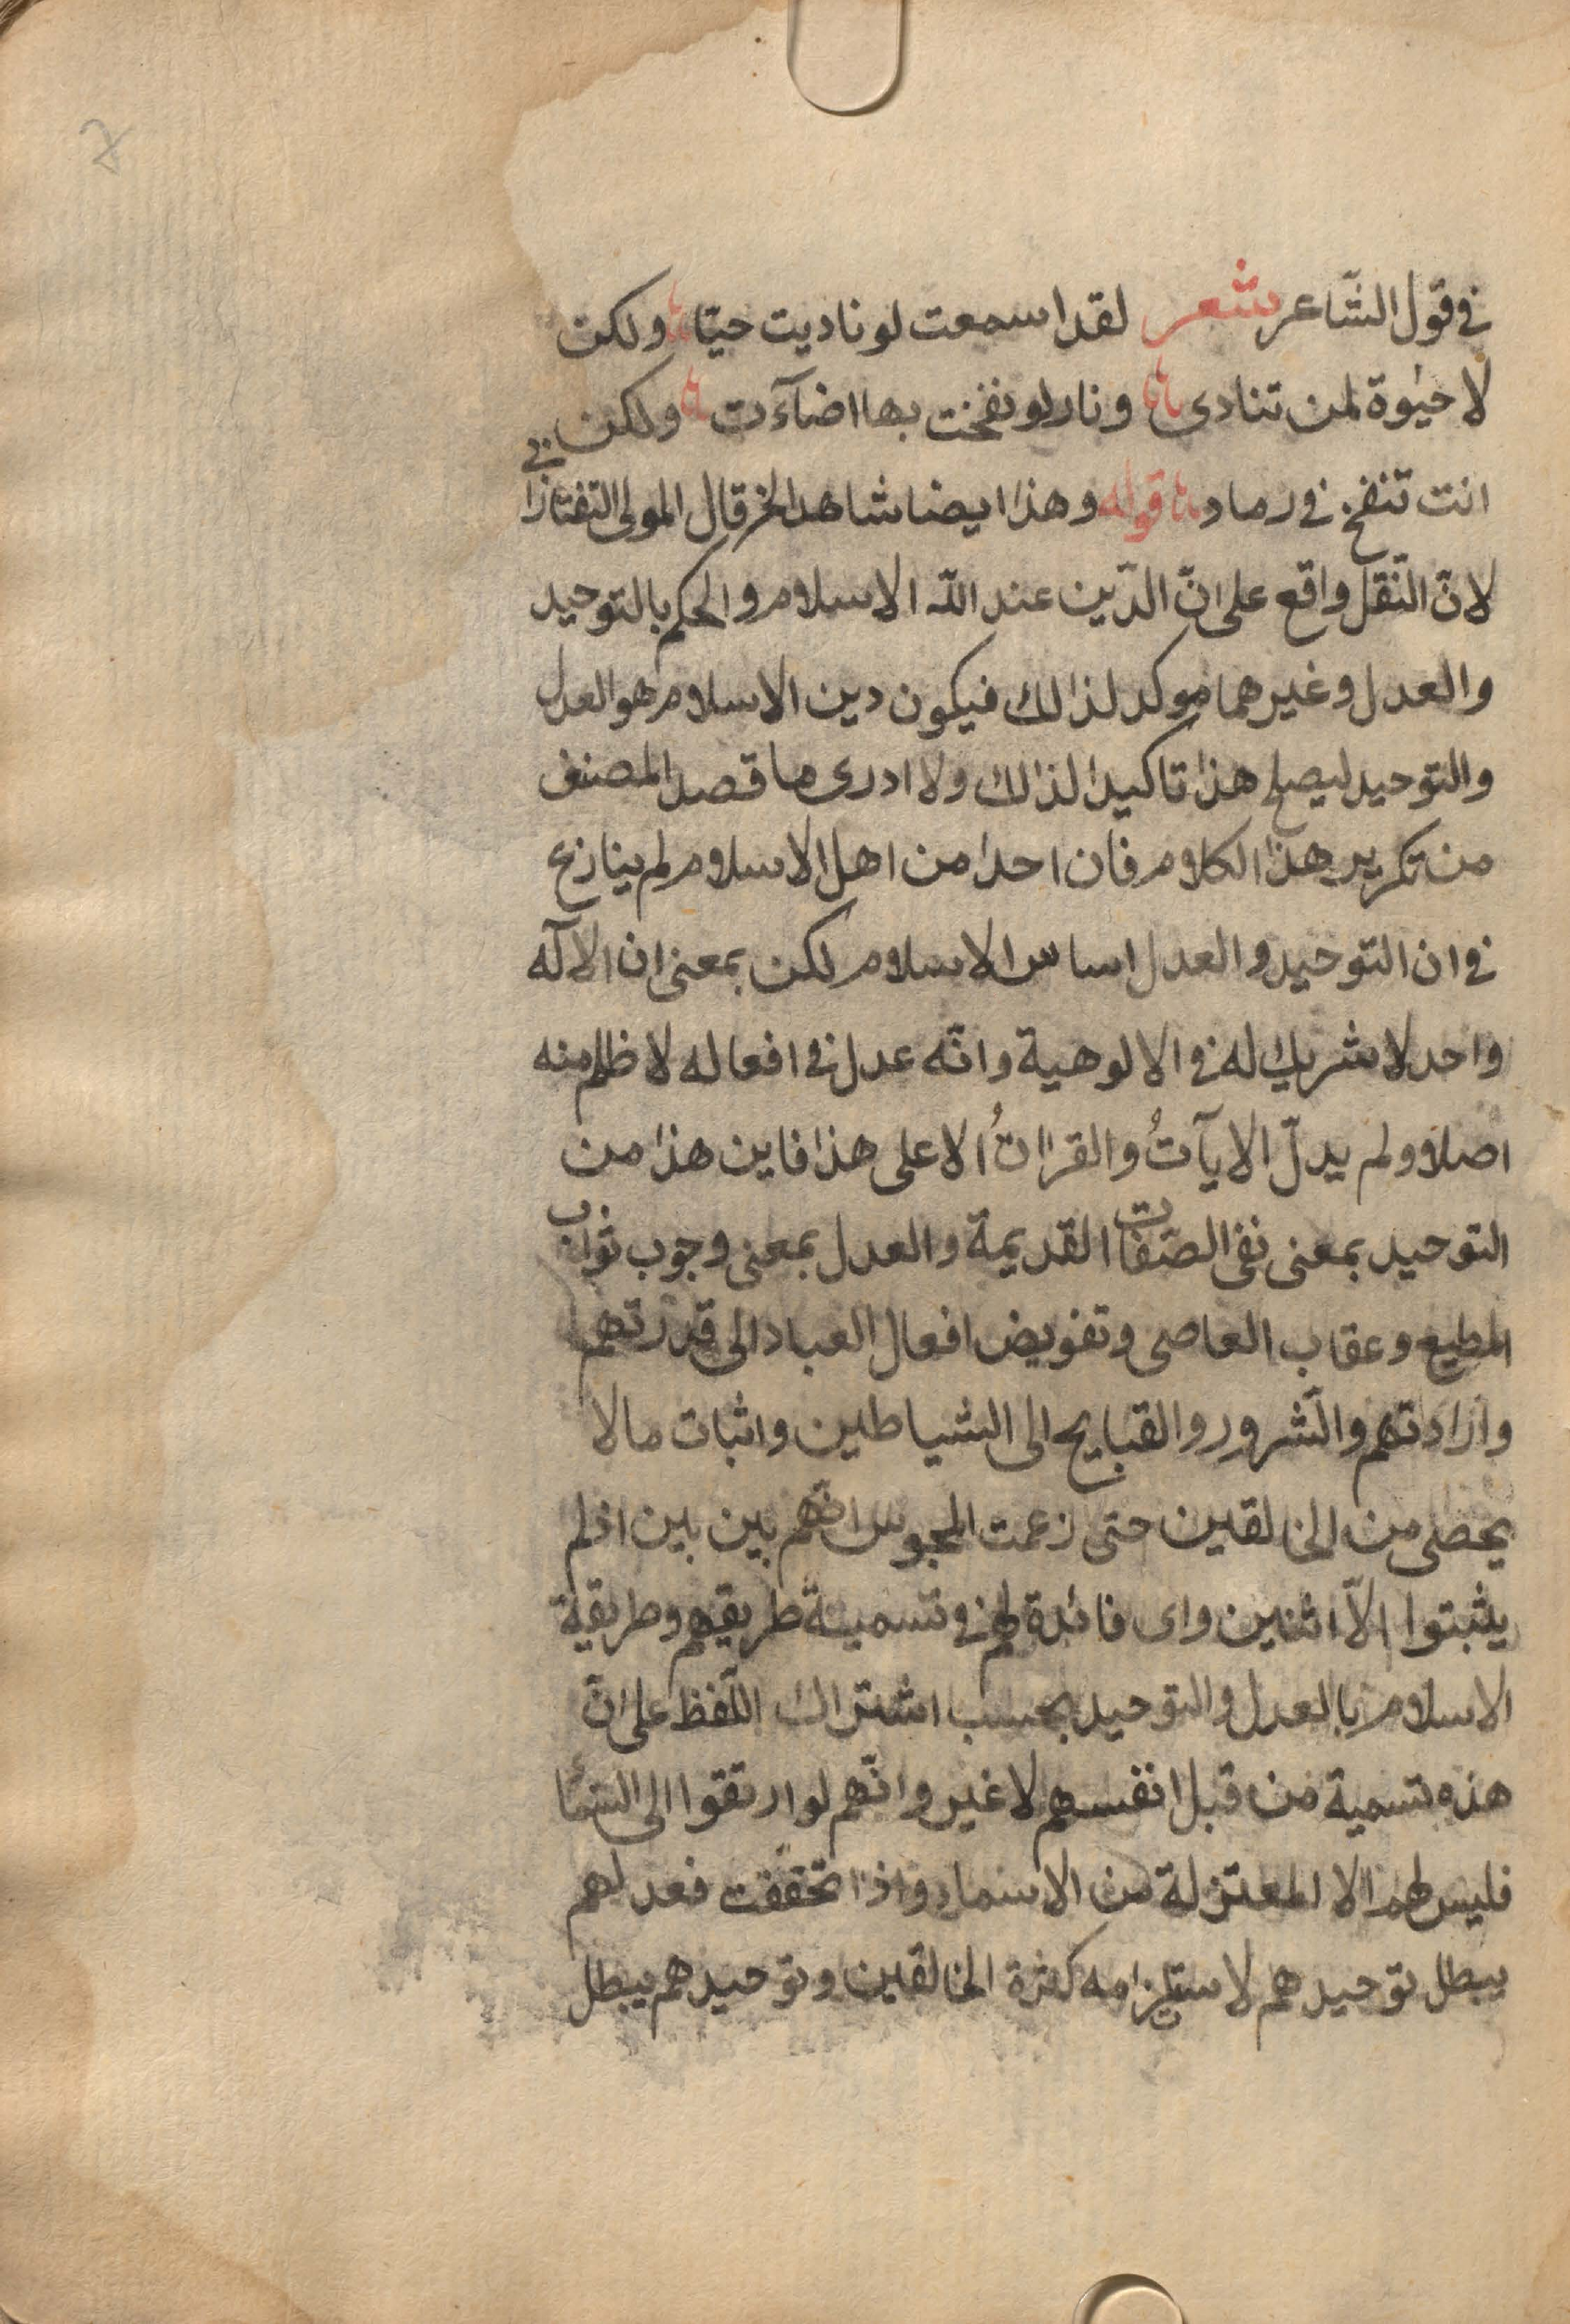 في قول الشّاعر شعر لقد اسمعت لو ناديت حيّا ولكن
لا حيٰوة لمن تنادى ونار لو نفخت بها اضآءت ولكن
انت تنفخ في رماد قوله وهذا ايضا شاهد الخ قال المولى التفتازاني
لانّ النّقل واقع على انّ الدّين عند اللّه الاسلام والحكم بالتوحيد
والعدل وغيرهما موكد لذالك فيكون دين الاسلام هو العدل
والتوحيد ليصلح هذا تاكيدا لذالك ولا ادرى ما قصد المصنف
من تكرير هذا الكلام فان احدا من اهل الاسلام لم ينازع
في ان التوحيد والعدل اساس الاسلام لكن بمعنى ان الآله
واحد لا شريك له في الالوهية وانّه عدل في افعاله لا ظلم منه
اصلا ولم يدلّ الايآتُ والقراٰنُ الا على هذا فاين هذا من
التوحيد بمعنى نفى الصّفات القديمة والعدل بمعنى وجوب ثواب
المطيع وعقاب العاصى وتفويض افعال العباد الى قدرتهم
وارادتهم والشّرور والقبايح الى الشياطين واثبات مالا
يحصى من الخالقين حتى زعمت المجوس انّهم بين بين اذ لم
يثبتوا الاّ اثنين واى فائدة لهم في تسمية طريقهم وطريقة
الاسلام بالعدل والتوحيد بحسب اشتراك اللّفظ على انّ
هذه تسمية من قبل انفسهم لا غير وانّهم لو ارتقوا الى السّمأ
فليس لهم الا المعتزلة من الاسماء واذا تحققت فعدلهم
يبطل توحيدهم لاستلزامه كثرة الخالقين وتوحيدهم يبطل